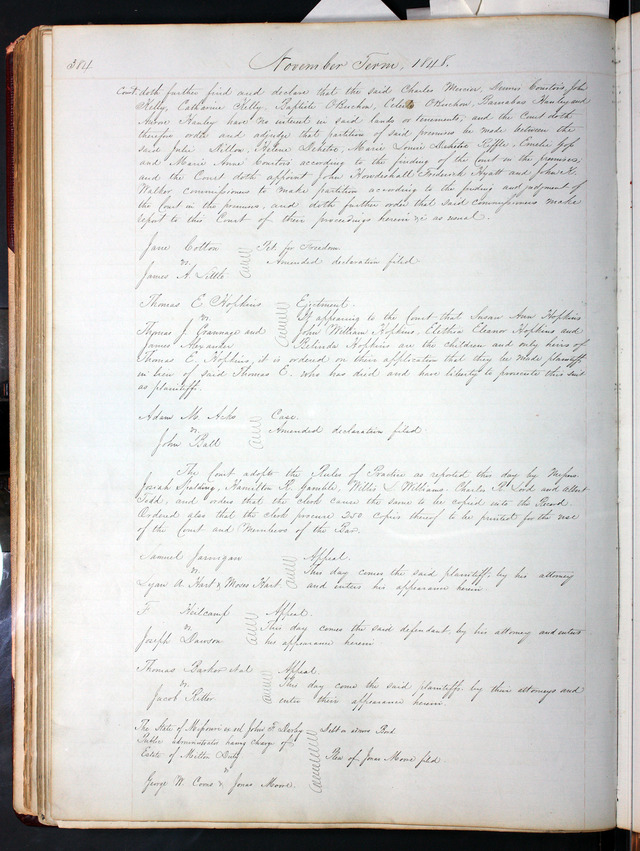 384
November Term, 1848.
Court doth further find and declare that the said Charles Mercier, Dennis Courtois, John
Kelly, Catharine Kelly, Baptiste OBuchon, OBuchon, Barnabas Hanley and
Hanley have no interest in said lands or tenements, and the Court doth
therefore order and adjudge that partition of said premises be made between the
said Julie Dillon, Marie Louise Emelie
and Marie Anne Courtois according to the finding of the Court in the premises,
and the Court doth appoint John Frederick Hyatt and John K.
Walker commissioners to make partition according to the finding and judgment of
the Court in the premises, and doth further order that said commissioners make
report to this Court of their proceedings herein &c as usual.
Jane Cotton
vs.
James A. Little
Pet. for Freedom
Amended declaration filed
Thomas E. Hopkins
vs.
Thomas J. Grannage and
James Alexander
Ejectment.
It appearing to the Court that Susan Ann Hopkins
John William Hopkins, Elethia Eleanor Hopkins and
Belinda Hopkins are the children and only heirs of
Thomas E. Hopkins, it is ordered on their application that they be made plaintiffs
in lieu of said Thomas E. who has died and have liberty to prosecute this suit
as plaintiffs.
Adam
vs.
John Ball
Case.
Amended declaration filed
The Court adopts the Rules of Practice as reported this day by Messrs
Josiah Spalding, Hamilton R. Gamble, Willis L. Williams, Charles B. Lord and Albert
Todd, and orders that the clerk cause the same to be copied into the Record.
Ordered also that the clerk procure 250 copies thereof to be printed for the use
of the Court and Members of the Bar.
Samuel Jarnigan
vs.
A. Hart & Moses Hart
Appeal
This day comes the said plaintiff, by his attorney
and enters his appearance herein.
F. Heitcamp
vs.
Joseph Dawson
Appeal.
This day comes the said defendant, by his attorney and enters
his appearance herein
Thomas Barker et al
vs.
Jacob Ritter
Appeal.
This day come the said plaintiffs by their attorneys and
enter their appearance herein.
The State of Missouri ex rel John F. Darby
Public administrator having charge of
Estate of Milton Duty
vs
George W. Coons & Jonas Moore.
Debt on admrs Bond
Plea of Jonas Moore filed